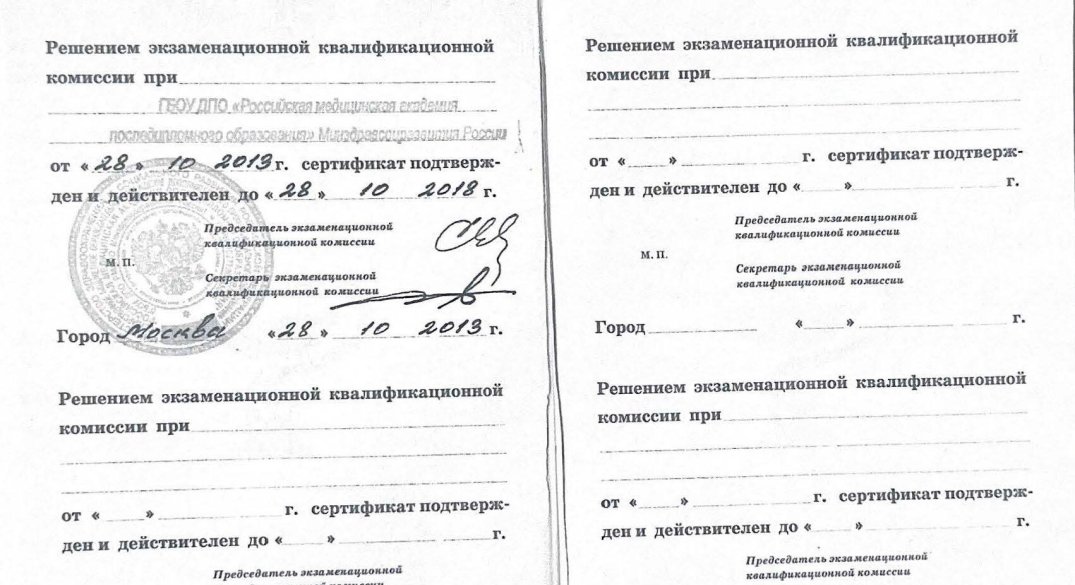 Решением экзаменационной квалификационной
комиссии при
ГБОУ ДПО «Российская медицинская академия
последипломного образования» Минздравсоцразвития России
от «28» 10 2013 г. сертификат подтверж-
ден и действителен до «28» 10 2018 г.
Председатель экзаменационной
квалификационной комиссии
М. П.
Секретарь экзаменационной
квалификационной комиссии
Город Москва «28» 10 2013 г.
Решением экзаменационной квалификационной
комиссии при
от « » г. сертификат подтверж-
ден и действителен до « » г.
Председатель экзаменационной
Решением экзаменационной квалификационной
комиссии при
от « » г. сертификат подтверж-
ден и действителен до « » г.
Председатель экзаменационной
квалификационной комиссии
М. П.
Секретарь экзаменационной
квалификационной комиссии
Город « » г.
Решением экзаменационной квалификационной
комиссии при
от « » г. сертификат подтверж-
ден и действителен до « » г.
Председатель экзаменационной
квалификационной комиссии